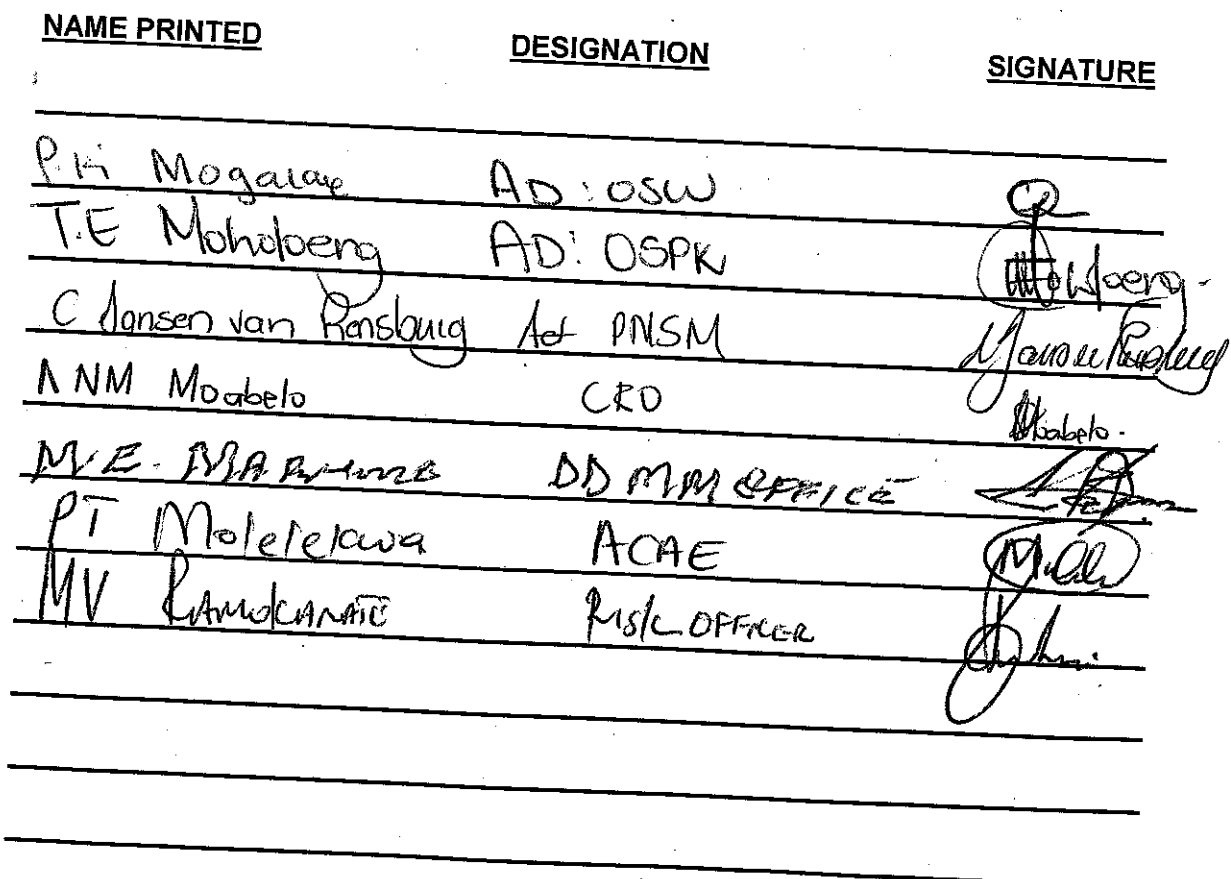 NAME PRINTED DESIGNATION SIGNATURE
P.K Mogalae AD: OSW
T.E Moholoeng AD: OSPK
C Jansen van Rensburg Act PMSM
NM Moabelo CRO Moabelo.
M.E. DD MM OFFICE
PT Molelekwa ACAE
MV RAMOKANATE RISK OFFICER